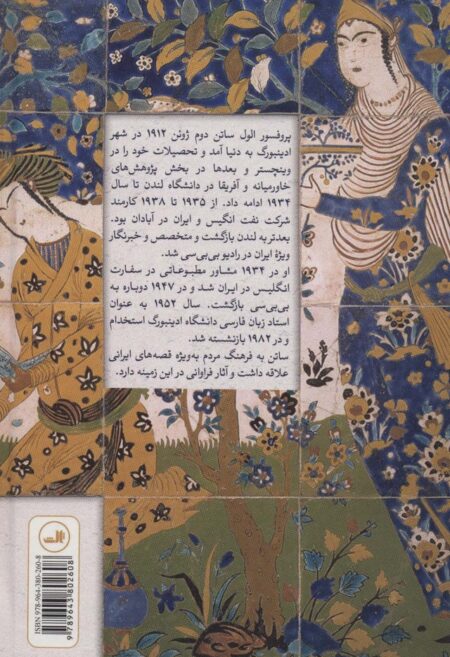 پروفسور الول ساتن دوم ژوئن ۱۹۱۲ در شهر
ادینبورگ به دنیا آمد و تحصیلات خود را در
وینچستر و بعدها در بخش پژوهش‌های
خاورمیانه و آفریقا در دانشگاه لندن تا سال
۱۹۳۴ ادامه داد. از ۱۹۳۵ تا ۱۹۳۸ کارمند
شرکت نفت انگیس و ایران در آبادان بود.
بعدتر به لندن بازگشت و متخصص و خبرنگار
ویژه ایران در رادیو بی‌بی‌سی شد.
او در ۱۹۳۴ مشاور مطبوعاتی در سفارت
انگلیس در ایران شد و در ۱۹۴۷ دوباره به
بی‌بی‌سی بازگشت. سال ۱۹۵۲ به عنوان
استاد زبان فارسی دانشگاه ادینبورگ استخدام
و در ۱۹۸۲ بازنشسته شد.
ساتن به فرهنگ مردم به‌ویژه قصه‌های ایرانی
علاقه داشت و آثار فراوانی در این زمینه دارد.
ثالث
ISBN 978-964-380-260-8
9 789643 802608